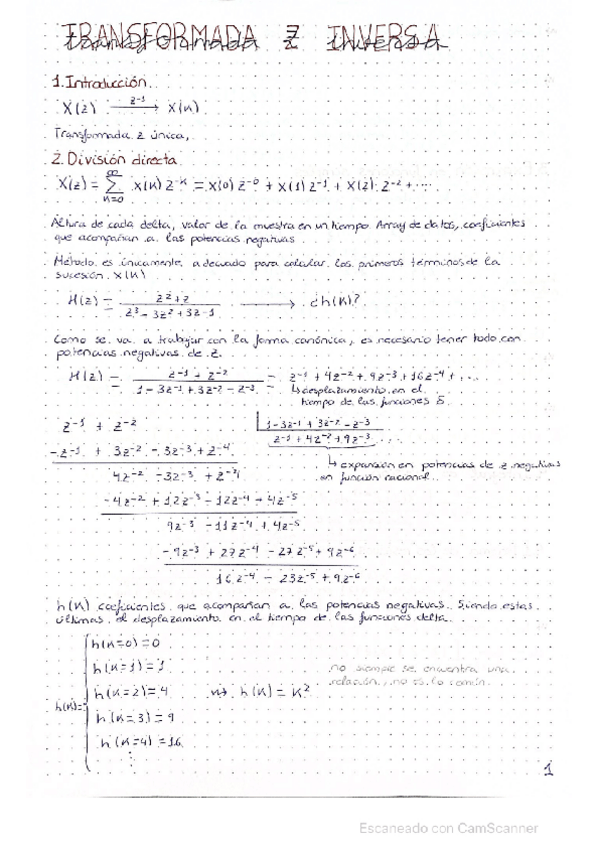 TRANSFORMADA Z INVERSA
1. Introducción
X(z) z⁻¹ → x(k)
Transformada z única,
2. División directa
X(z) = ∞ Σ k=0 x(k) z⁻ᵏ = x(0) z⁻⁰ + x(1) z⁻¹ + x(2) z⁻² + ...
Altura de cada delta, valor de la muestra en un tiempo. Array de datos, coeficientes
que acompañan a las potencias negativas
Método es únicamente adecuado para calcular los primeros términos de la
sucesión x(k)
H(z) = z² + z / z³ - 3z² + 3z - 1 → ¿h(k)?
Como se va a trabajar con la forma canónica, es necesario tener todo con
potencias negativas de z.
H(z) = z⁻¹ + z⁻² / 1 - 3z⁻¹ + 3z⁻² - z⁻³ = z⁻¹ + 4z⁻² + 9z⁻³ + 16z⁻⁴ + ...
↳ desplazamiento en el
tiempo de las funciones δ
z⁻¹ + z⁻² | 1 - 3z⁻¹ + 3z⁻² - z⁻³
z⁻¹ + 4z⁻² + 9z⁻³ ...
- z⁻¹ + 3z⁻² - 3z⁻³ + z⁻⁴
↳ expansión en potencias de z negativas
4z⁻² - 3z⁻³ + z⁻⁴
en función racional.
- 4z⁻² + 12z⁻³ - 12z⁻⁴ + 4z⁻⁵
9z⁻³ - 11z⁻⁴ + 4z⁻⁵
- 9z⁻³ + 27z⁻⁴ - 27z⁻⁵ + 9z⁻⁶
16z⁻⁴ - 23z⁻⁵ + 9z⁻⁶
h(k) coeficientes que acompañan a las potencias negativas. Siendo estas
últimas el desplazamiento en el tiempo de las funciones delta.
h(k=0) = 0
h(k=1) = 1
no siempre se encuentra una
relación, no es lo común.
h(k=2) = 4 ⟿ h(k) = k²
h(k) =
h(k=3) = 9
h(k=4) = 16
⋮
1
Escaneado con CamScanner